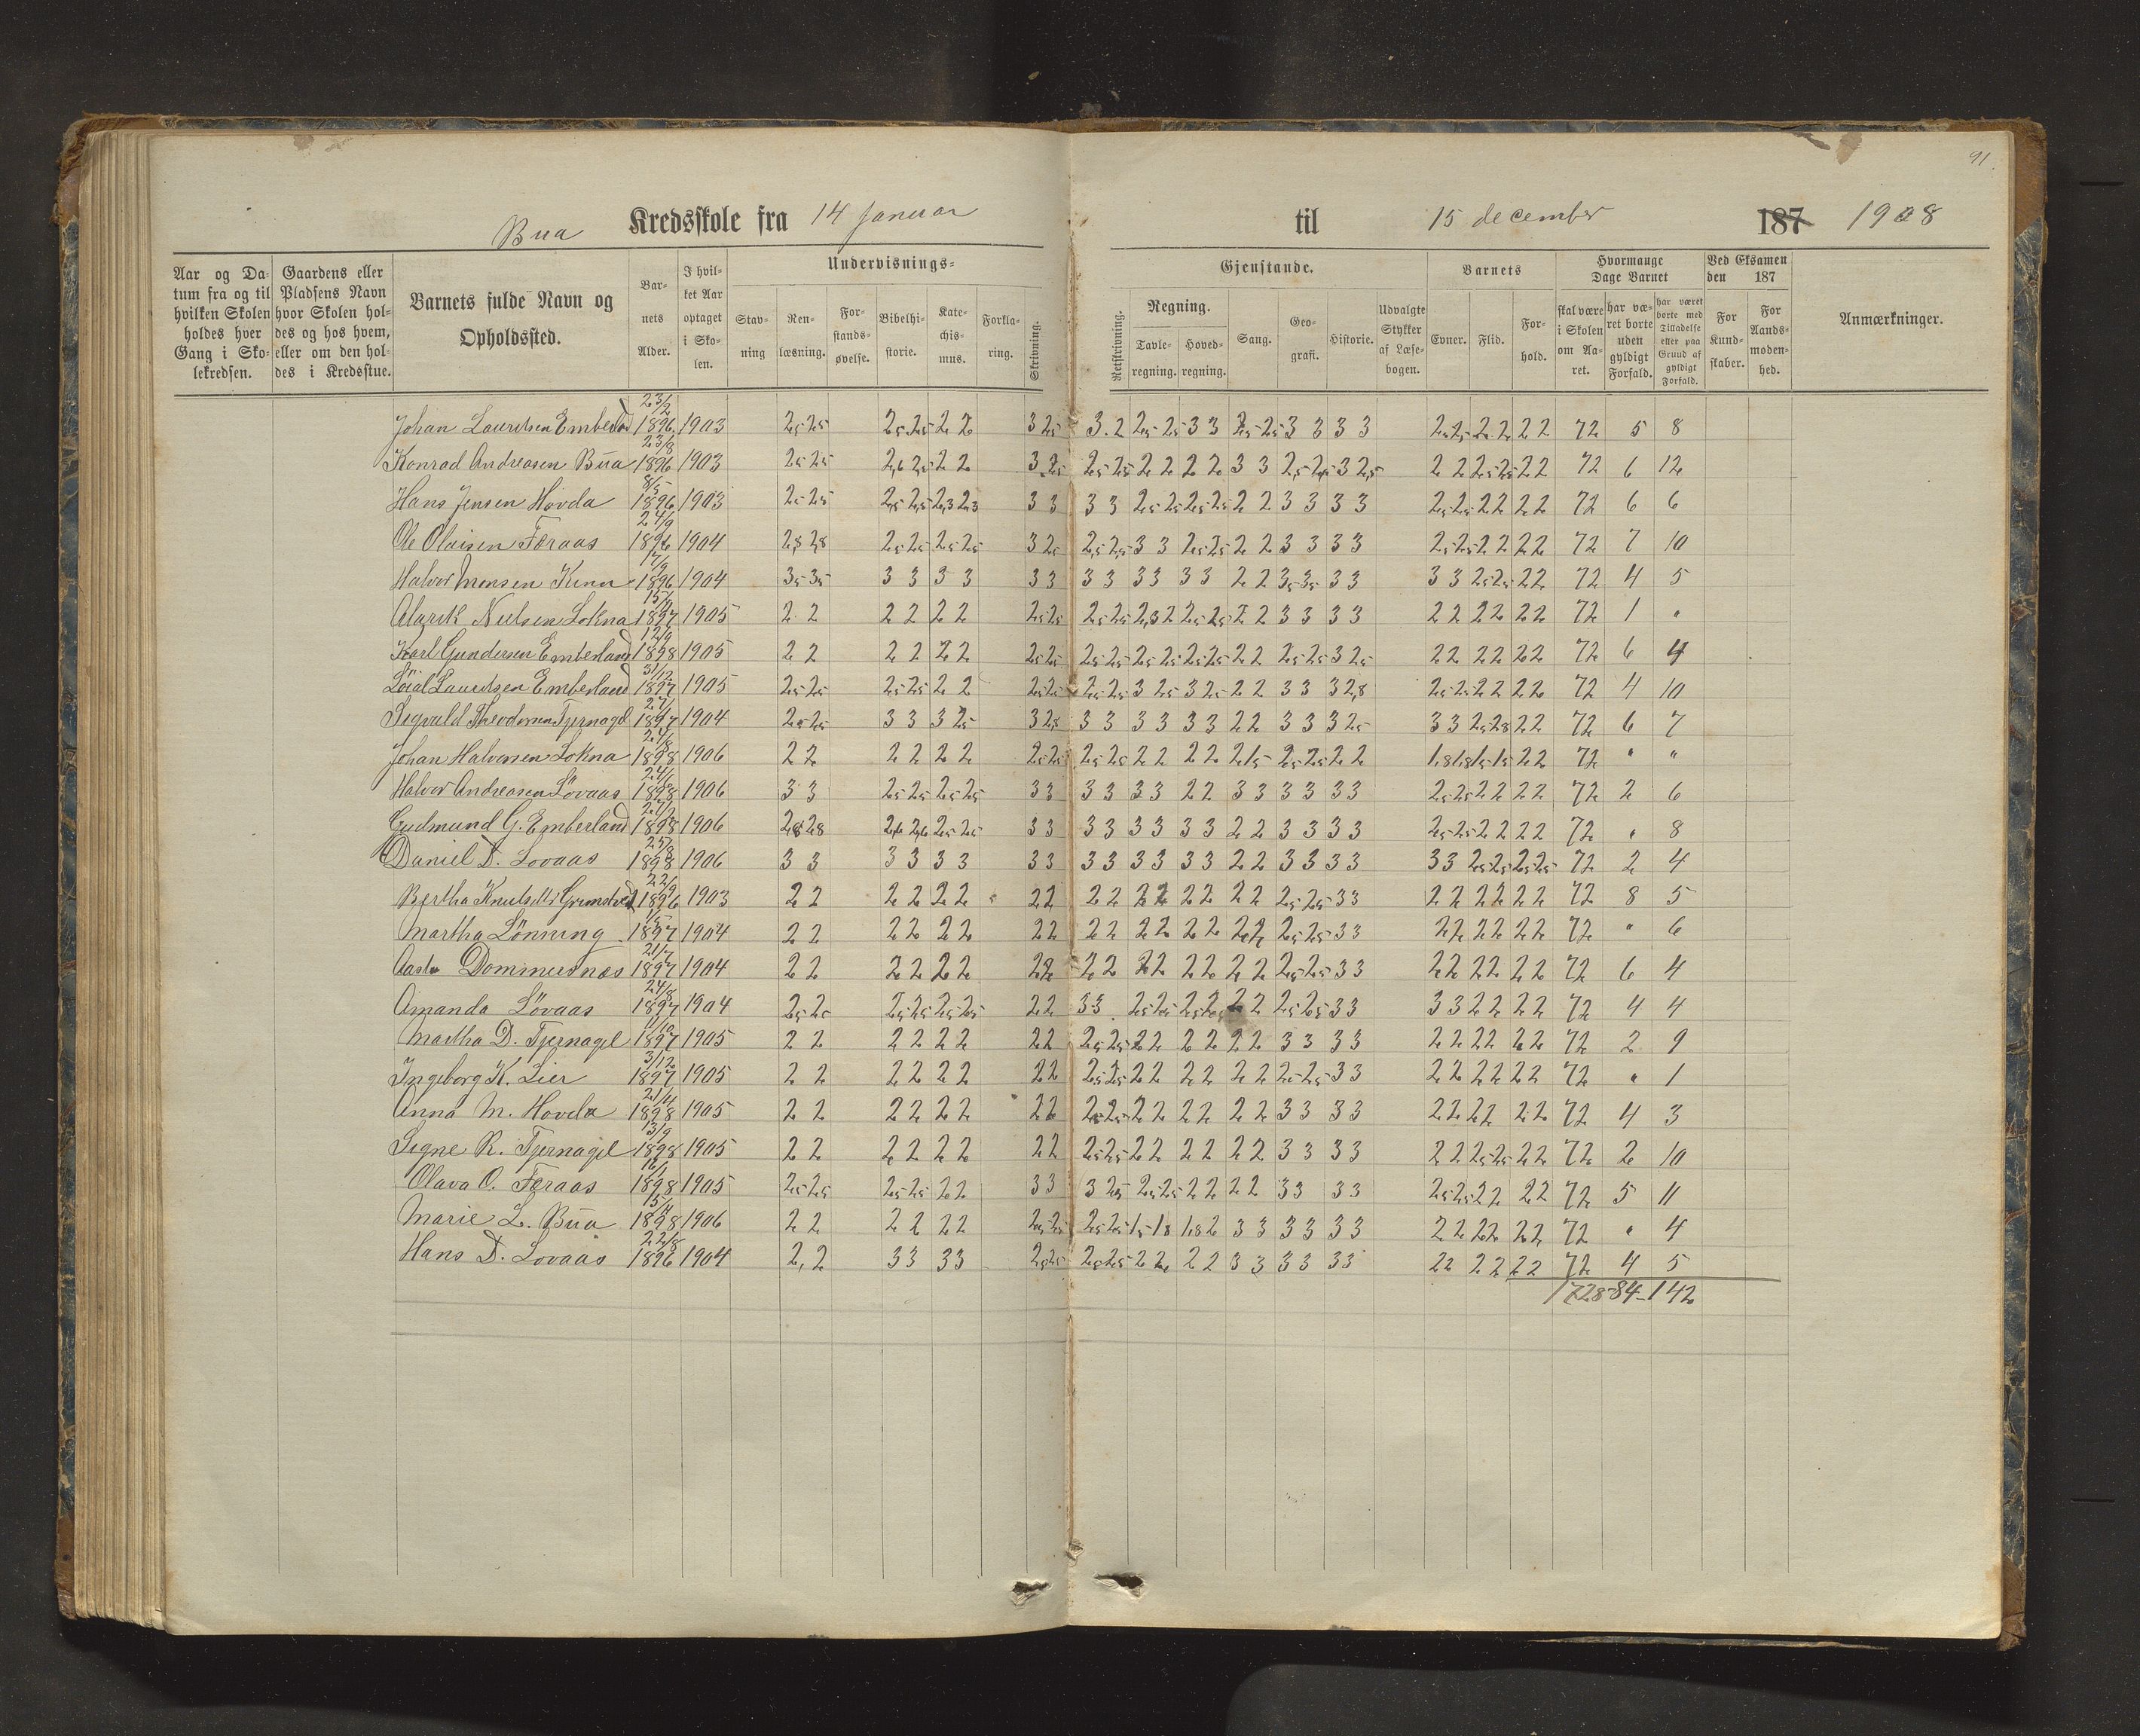 91
Bua Kredsskole fra 14 Januar til 15 december 187 1908
Aar og Datum fra og til hvilken Skolen holdes hver Gang i Skolekredsen.
Gaardens eller Pladsens Navn hvor Skolen holdes og hos hvem, eller om den holdes i Kredsstue.
Barnets fulde Navn og Opholdssted.
Barnets Alder.
I hvilket Aar optaget i Skolen.
Undervisnings-
Stavning
Renlæsning.
Forstandsøvelse.
Bibelhistorie.
Katechismus.
Forklaring.
Skrivning.
Gjenstande.
Retskrivning.
Regning.
Tavleregning.
Hovedregning.
Sang.
Geografi.
Historie.
Udvalgte Stykker af Læsebogen.
Barnets
Evner.
Flid.
Forhold.
Hvormange Dage Barnet
skal være i Skolen om Aaret.
har været borte uden gyldigt Forfald.
har været borte med Tilladelse eller paa Grund af gyldigt Forfald.
Ved Eksamen den 187
For Kundskaber.
For Aandsmodenhed.
Anmærkninger.
Johan Lauritsen Emberland 23/2 1896 1903 2,5 2,5 2,5 2,5 2 2 3 2,5 3.2 2,5 2,5 3 3 2,5 2,5 3 3 3 3 2,5 2,5 2 2 2 2 72 5 8
Konrad Andreasen Bua 23/8 1896 1903 2,5 2,5 2,6 2,5 2 2 3 2,5 2,5 2,5 2 2 2 2 3 3 2,5 2,5 3 2,5 2 2 2,5 2,5 2 2 72 6 12
Hans Jensen Hovda 8/5 1896 1903 2,5 2,5 2,5 2,5 2,3 2,3 3 3 3 3 2,5 2,5 2,5 2,5 2 2 3 3 3 3 2,5 2,5 2 2 2 2 72 6 6
Ole Olaisen Færaas 24/9 1896 1904 2,8 2,8 2,5 2,5 2,5 2,5 3 2,5 2,5 2,5 3 3 2,5 2,5 2 2 3 3 3 3 2,5 2,5 2 2 2 2 72 7 10
Halvor Monsen 1896 1904 3,5 3,5 3 3 3 3 3 3 3 3 3 3 3 3 2 2 3,5 3,5 3 3 3 3 2,5 2,5 2 2 72 4 5
Alarik Nielsen Lokna 1897 1905 2 2 2 2 2 2 2,5 2,5 2,5 2,5 2,3 2 2,5 2,5 2 2 3 3 3 3 2 2 2 2 2 2 72 1 "
Karl Gundersen Emberland 12/9 1898 1905 2 2 2 2 2 2 2,5 2,5 2,5 2,5 2,5 2,5 2,5 2,5 2 2 2,5 2,5 3 2,5 2 2 2 2 2 2 72 6 4
Lauritsen Emberland 31/12 1897 1905 2,5 2,5 2,5 2,5 2 2 2,5 2,5 2,5 2,5 3 2,5 3 2,5 2 2 3 3 3 2,8 2,5 2,5 2 2 2 2 72 4 10
Sigvald Theodorsen Tjernagel 1897 1904 2,5 2,5 3 3 3 2,5 3 2,8 3 3 3 3 3 3 2 2 3 3 3 2,5 3 3 2,5 2,8 2 2 72 6 7
Johan Halvorsen Lokna 1898 1906 2 2 2 2 2 2 2,5 2,5 2,5 2,5 2 2 2 2 2 1,5 2,5 2,5 2 2 1,8 1,8 1,5 1,5 2 2 72 " "
Halvor Andreasen Lövaas 1898 1906 3 3 2,5 2,5 2,5 2,5 3 3 3 3 3 3 2 2 3 3 3 3 3 3 2,5 2,5 2 2 2 2 72 2 6
Gudmund G. Emberland 1898 1906 2,8 2,8 2,6 2,6 2,5 2,5 3 3 3 3 3 3 3 3 2 2 3 3 3 3 2,5 2,5 2 2 2 2 72 " 8
Daniel D. Lovaas 1898 1906 3 3 3 3 3 3 3 3 3 3 3 3 3 3 2 2 3 3 3 3 3 3 2,5 2,5 2,5 2,5 72 2 4
Bertha Knutsdtr 22/9 1896 1903 2 2 2 2 2 2 2 2 2 2 2 2 2 2 2 2 2,5 2,5 3 3 2 2 2 2 2 2 72 8 5
Martha Lönning 1/5 1897 1904 2 2 2 2 2 2 2 2 2 2 2 2 2 2 2 2 2,5 2,5 3 3 2 2 2 2 2 2 72 " 6
Aasta Dommersnæs 21/7 1897 1904 2 2 2 2 2 2 2 2 2 2 2 2 2 2 2 2 2,5 2,5 3 3 2 2 2 2 2 2 72 6 4
Amanda Lövaas 24/8 1897 1904 2,5 2,5 2,5 2,5 2,5 2,5 2 2 3 3 2,5 2,5 2,5 2,5 2 2 2,5 2,5 3 3 3 3 2 2 2 2 72 4 4
Martha D. Tjernagel 1/12 1897 1905 2 2 2 2 2 2 2 2 2,5 2,5 2 2 2 2 2 2 3 3 3 3 2 2 2 2 2 2 72 2 9
Ingeborg K. Lier 3/12 1897 1905 2 2 2 2 2 2 2 2 2,5 2,5 2 2 2 2 2 2 2,5 2,5 3 3 2 2 2 2 2 2 72 " 1
Anna M. Hovda 21/4 1898 1905 2 2 2 2 2 2 2 2 2,5 2,5 2 2 2 2 2 2 3 3 3 3 2 2 2 2 2 2 72 4 3
Signe R. Tjernagel 13/9 1898 1905 2 2 2 2 2 2 2 2 2,5 2,5 2 2 2 2 2 2 3 3 3 3 2 2 2,5 2,5 2 2 72 2 10
Olava O. Færaas 1898 1905 2,5 2,5 2,5 2,5 2 2 3 3 3 2,5 2,5 2,5 2 2 2 2 3 3 3 3 2,5 2,5 2 2 2 2 72 5 11
Marie L. Bua 1898 1906 2 2 2 2 2 2 2,5 2,5 2,5 2,5 1,5 1,8 1,8 2 3 3 3 3 3 3 2 2 2 2 2 2 72 " 4
Hans D. Lovaas 22/8 1896 1904 2,2 3 3 3 3 2,5 2,5 2,5 2,5 2 2 2 2 3 3 3 3 3 3 2 2 2 2 2 2 72 4 5
1728-84-142